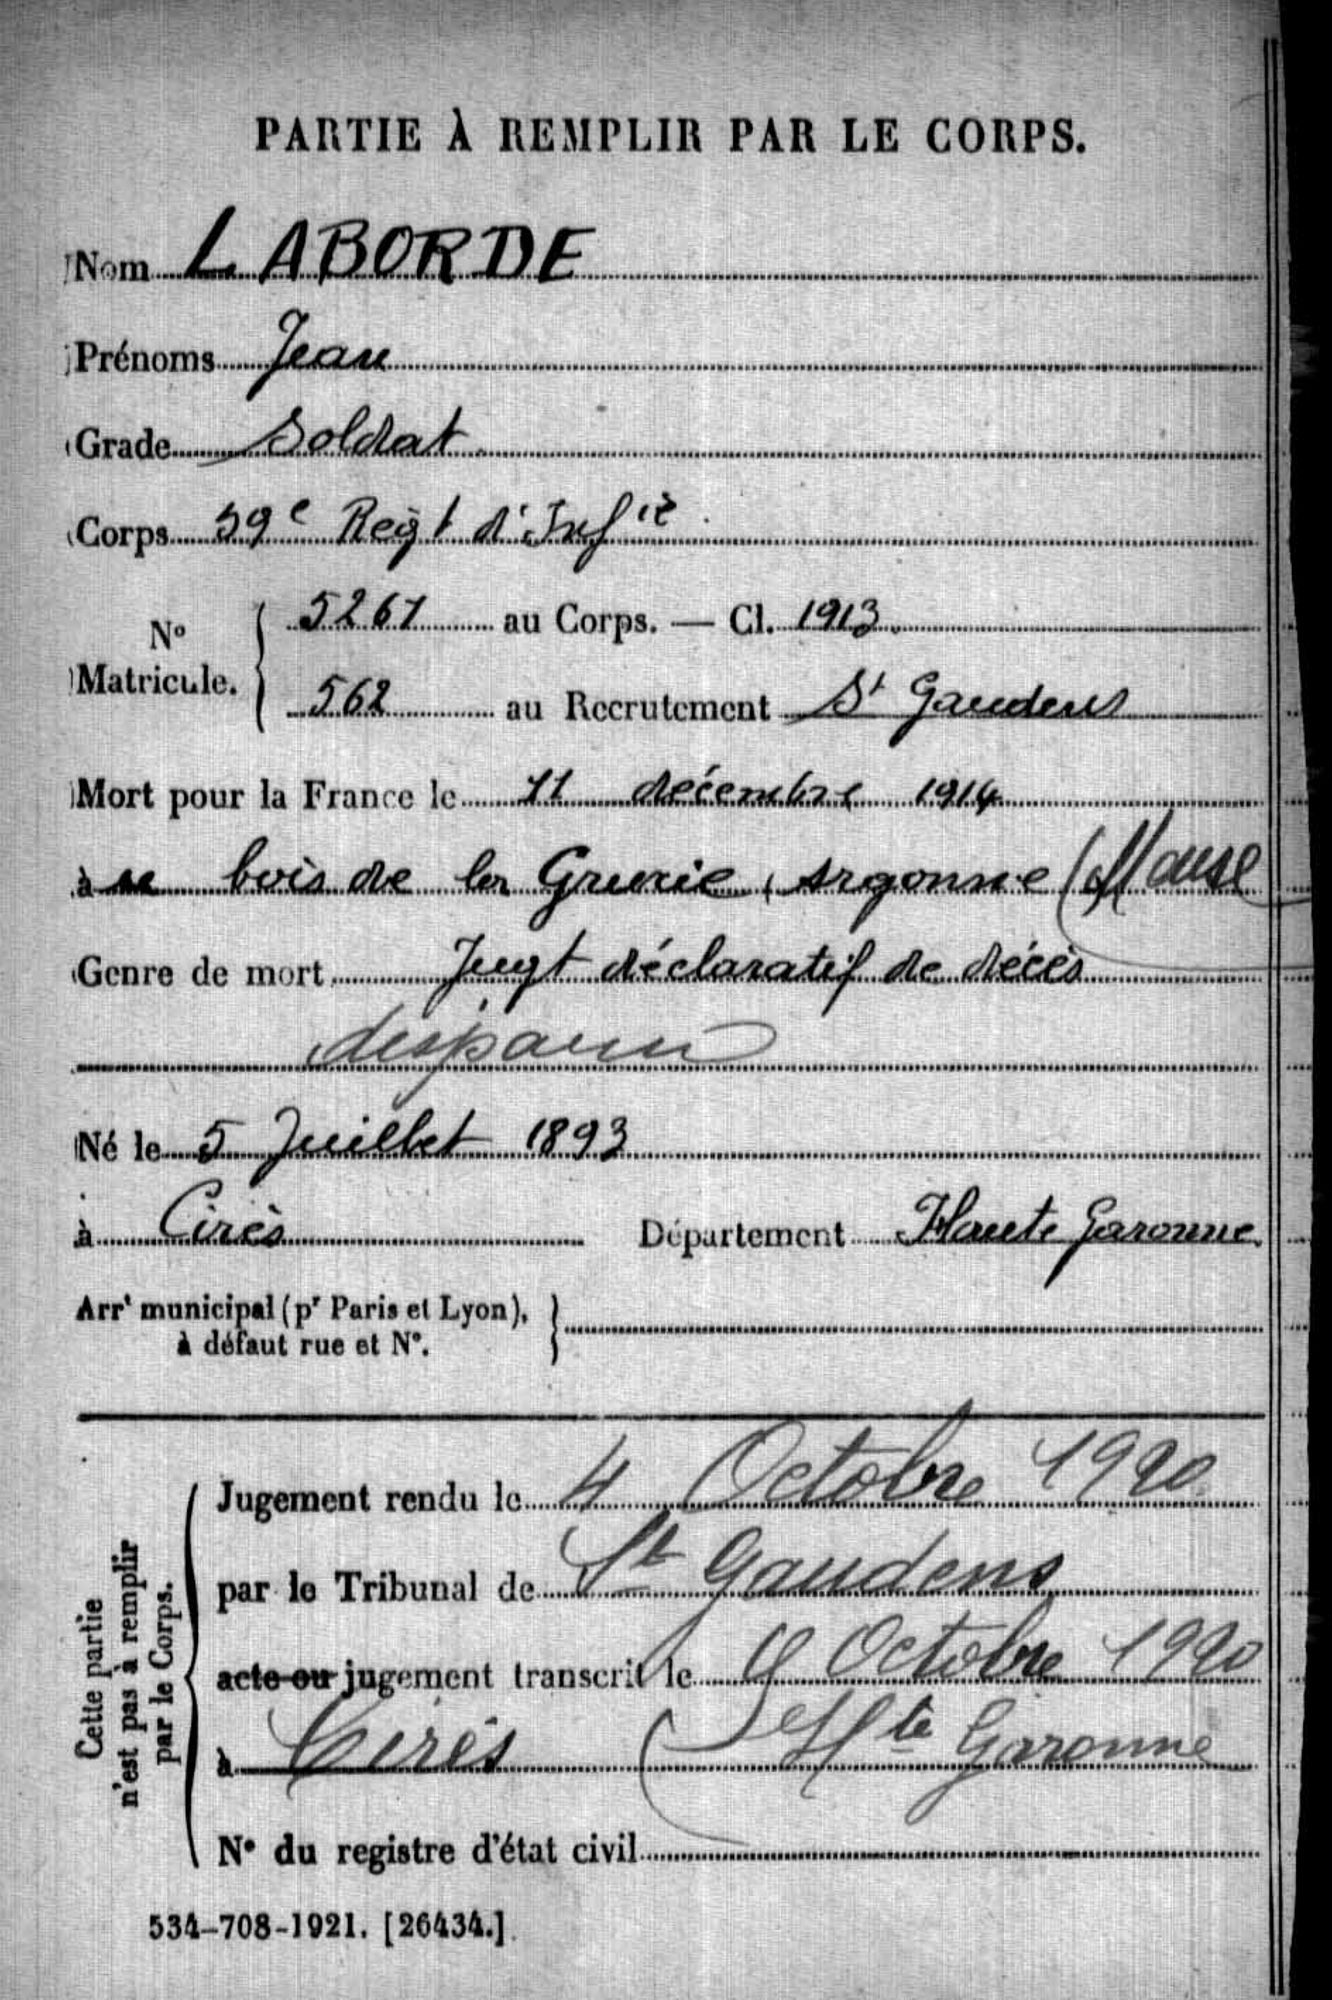 PARTIE À REMPLIR PAR LE CORPS.
Nom LABORDE
Prénoms Jean
Grade Soldat
Corps 59e Regt d'Infie
N° Matricule. 5261 au Corps. — Cl. 1913.
562 au Recrutement St Gaudens
Mort pour la France le 11 décembre 1914
à bois de la Grurie, Argonne (Meuse
Genre de mort Jugt déclaratif de décès
disparu
Né le 5 Juillet 1893
à Cirès Département Haute Garonne.
Arrt municipal (pr Paris et Lyon),
à défaut rue et N°.
Cette partie
n'est pas à remplir
par le Corps.
Jugement rendu le 4 Octobre 1920.
par le Tribunal de St Gaudens
acte ou jugement transcrit le 9 Octobre 1920
à Cirès (Hte Garonne
N° du registre d'état civil
534-708-1921. [26434.]